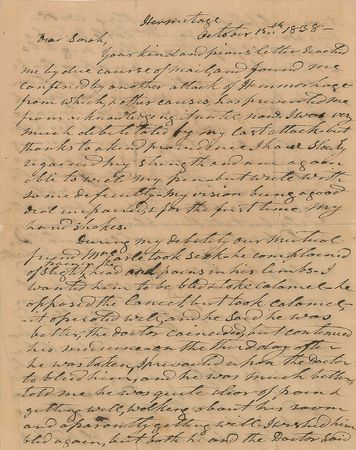 Hermitage
October 15th 1838—
Dear Sarah,
Your kind and pious letter reached
me by due course of mail, and found me
confined by another attack of Hemmorhage
from which, & other causes, has prevented me
from acknowledging it until now. I was very
much debilitated by my last attack but
thanks to a kind providence I have slowly
regained my strength and am again
able to wield my pen but write with
some difficulty—my vision being a good
deal impaired, & for the first time my
hand shakes.
During my debility our mutual
friend Earle took sick he complained
of slight head and pains in his limbs. I
wanted him to be bled & take calomel—he
opposed the lancet but took calomel
it operated well, and he said he was
better, the doctor coincided, but continued
his medicine—on the third day after
he was taken, I prevailed upon the Doctor
to bleed him, and he was much better,
told me he was quite clear of pain &
getting well, walking about his room
and apparently getting well. I wished him
bled again, but both he and the Doctor said